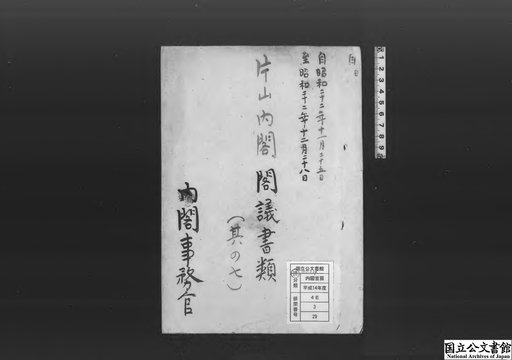 自昭和二十二年十一月二十五日
至昭和二十二年十二月二十八日
片山内閣 閣議書類
(其の七)
内閣事務官
国立公文書館
分類
内閣官房
平成14年度
4E
3
29
排架番号
1 2 3 4 5 6 7 8 9
国立公文書館
National Archives of Japan